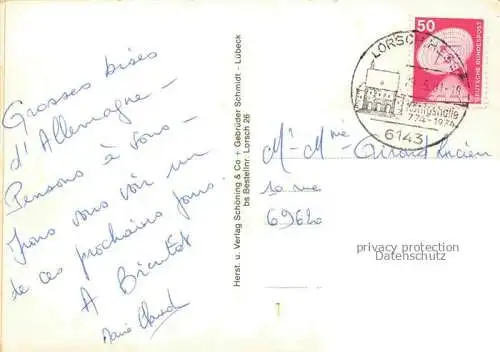 Grosses bises
d'Allemagne -
Pensons à vous -
Irons vous voir un
de ces prochains jours.
A Bientôt
Marie
Herst. u. Verlag Schöning & Co + Gebrüder Schmidt - Lübeck
bs Bestellnr. Lorsch 26
50
DEUTSCHE BUNDESPOST
LORSCH, HESS
Königshalle
774-1974
6143
Mr Mme Girond Lucien
la rue
69620
privacy protection
Datenschutz